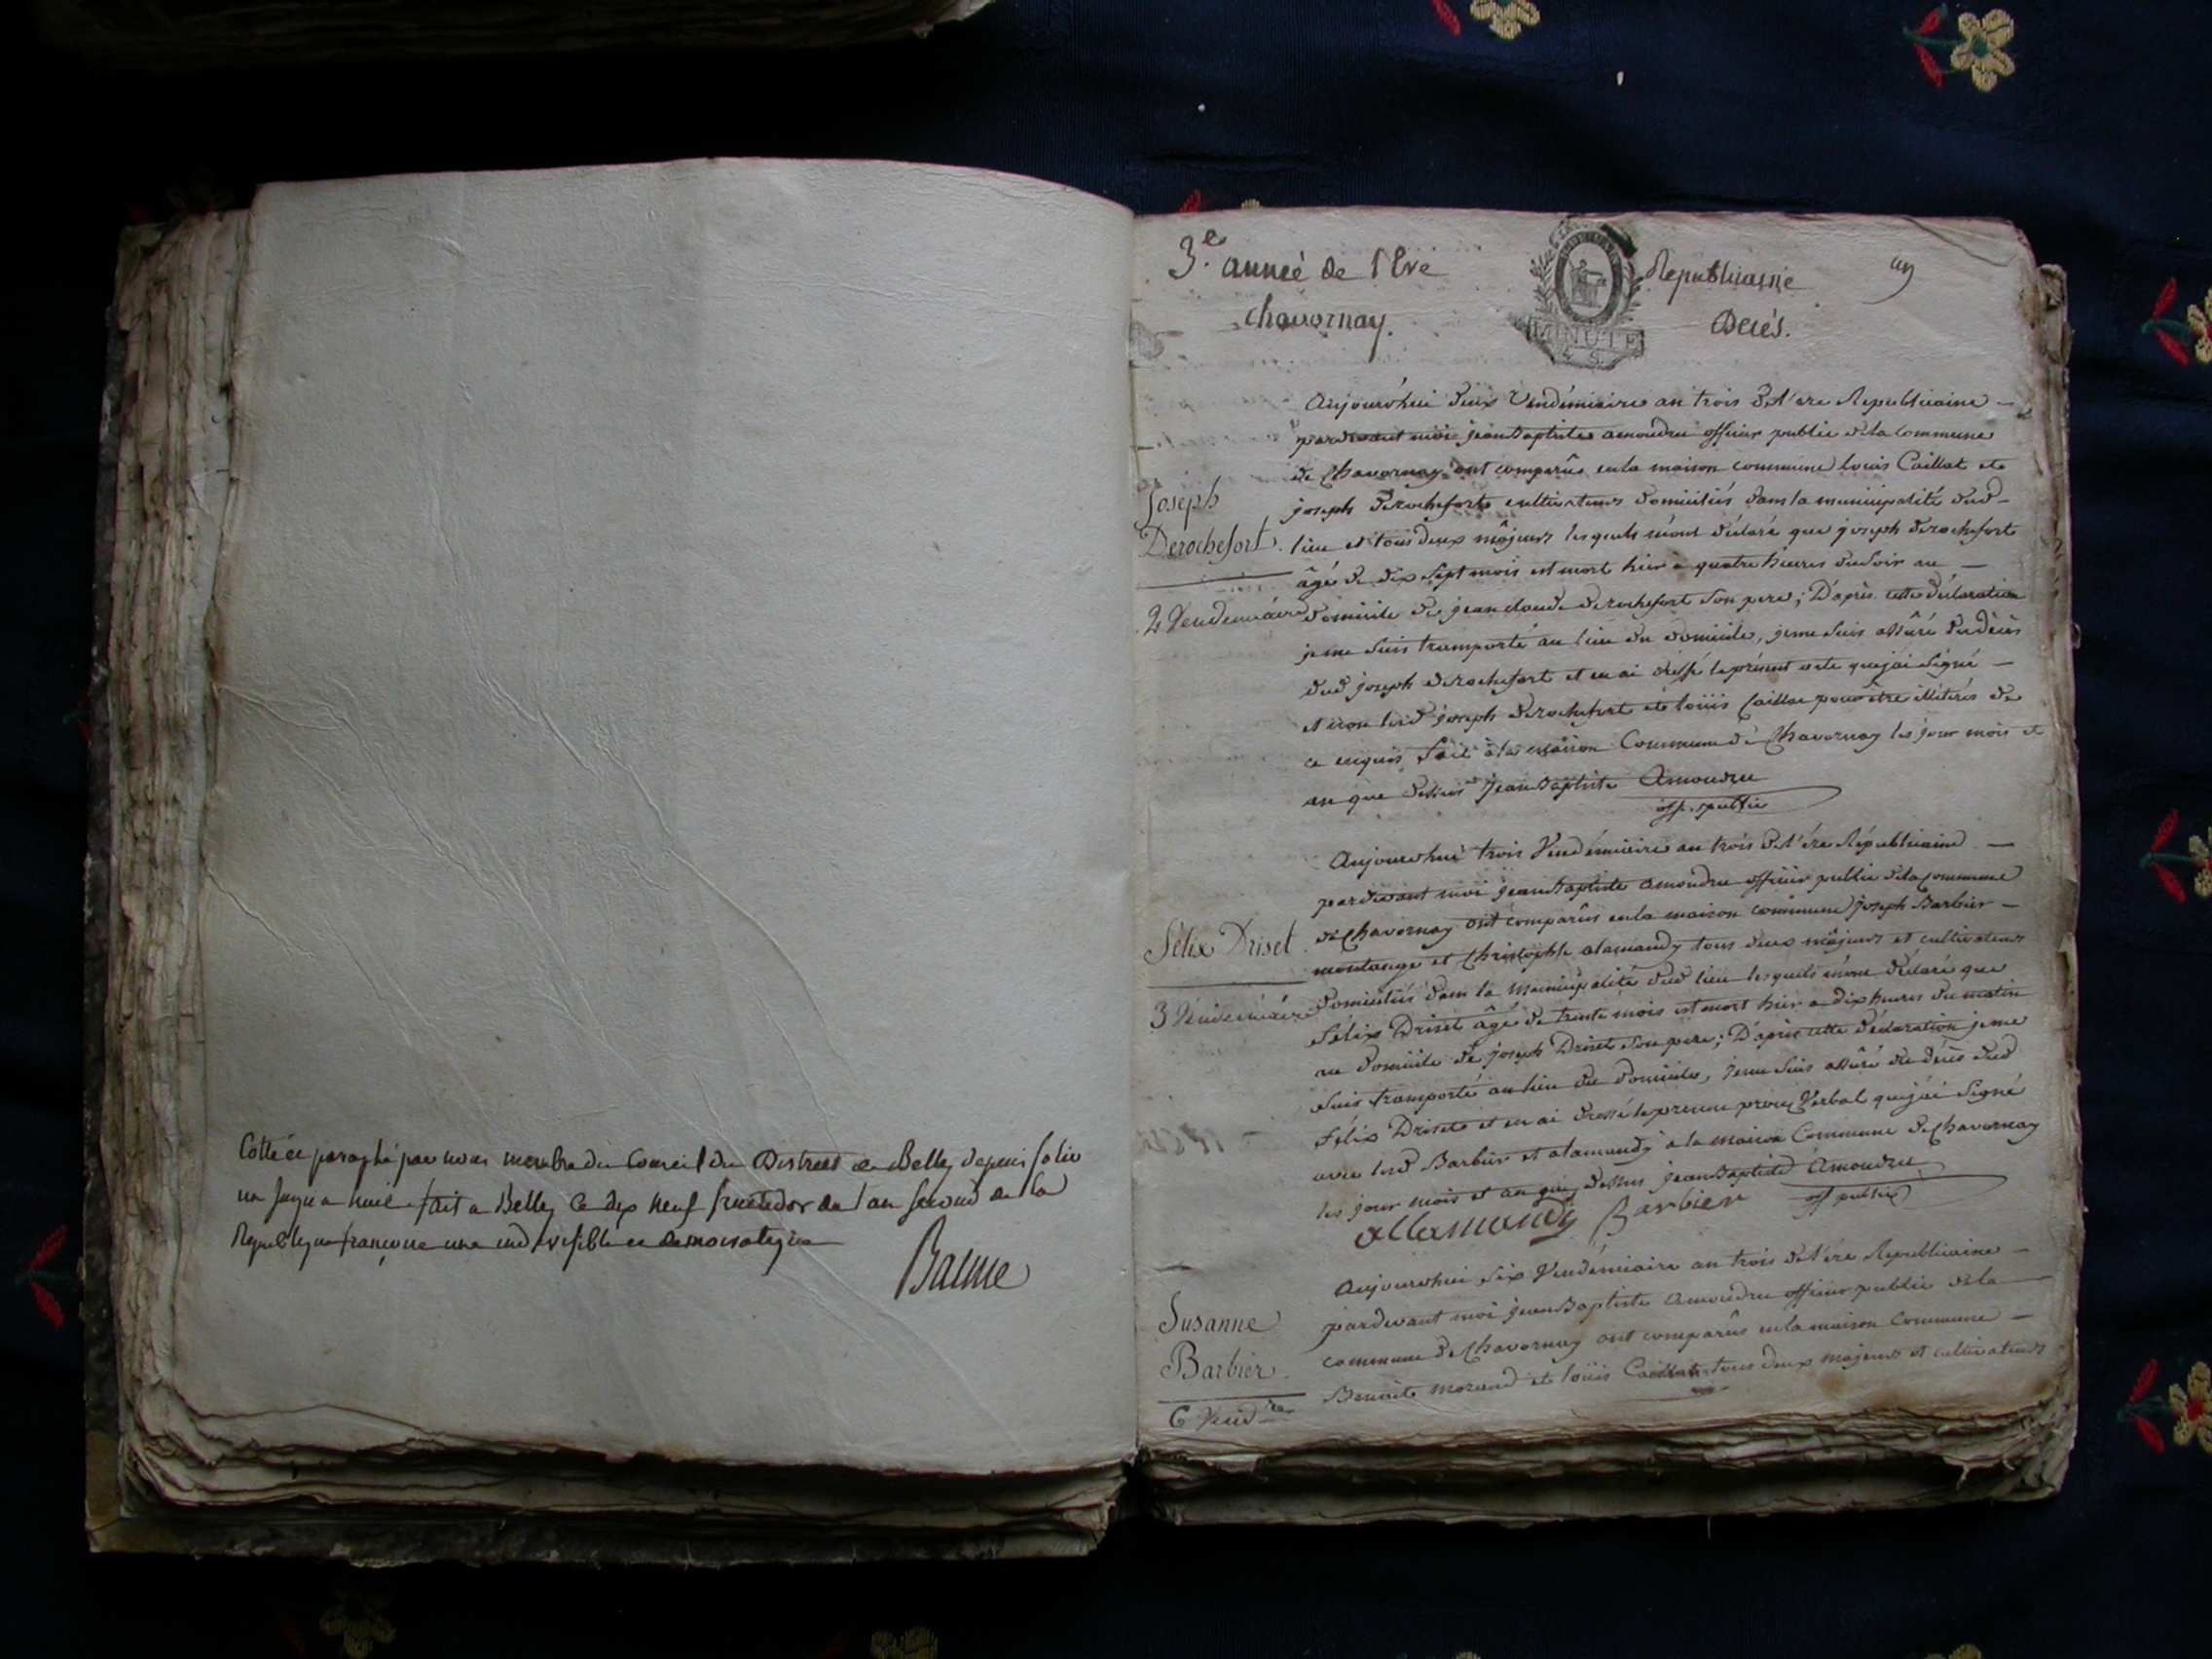 Cotté et paraphé par nous membre du Conseil du District de Belley depuis folio
un jusqu'a huit fait a Belley Ce dix neuf fructidor de l'an second de la
Republique françoise une indivisible et democratique
Balme
3.e année de l'Ere Republicaine
Chavornay. Decés.
MINUTE
Aujourd'hui deux Vendémiaire an trois de l'ere Republicaine
pardevant moi jean Baptiste amoudru officier public de la Commune
de Chavornay ont comparûs en la maison commune louis Caillat et
Joseph
joseph Derochefort cultivateurs domiciliés dans la municipalité dud
Derochefort.
lieu et tous deux mâjeurs lesquels m'ont déclaré que joseph derochefort
âgé de dix sept mois est mort hier a quatre heures du soir au
2 Vendemiaire
domicile de jean claude derochefort son pere; D'après cette déclaration
je me suis transporté au lieu du domicile, je me suis assûré du décès
dud joseph derochefort et en ai dressé le présent acte que j'ai signé
et non lesd joseph Derochefort et loüis Caillat pour être illitérés de
ce enquis fait à la maison Commune de Chavornay les jour mois et
an que dessus jean Baptiste Amoudru
off. public
Aujourd'hui trois Vendémiaire an trois de l'ére Républicaine
pardevant moi jean Baptiste amoudru officier public de la commune
de Chavornay ont comparûs en la maison commune joseph Barbier
Félix Driset
montange et Christophle alamandy tous deux mâjeurs et cultivateurs
3 Vendémiaire
domiciliés dans la Municipalité dud lieu lesquels m'ont déclaré que
Félix Driset âgé de trente mois est mort hier a dix heures du matin
au domicile de joseph Driset son pere; D'après cette déclaration je me
suis transporté au lieu du domicile, je me suis assûré du décès dud
Félix Driset et en ai dressé le présent procès Verbal que j'ai signé
avec lesd Barbier et alamandy a la maison Commune de Chavornay
les jour mois et an que dessus jean Baptiste Amoudru
allamandy Barbier off public
Aujourd'hui six Vendémiaire an trois de l'ére Republicaine
pardevant moi jean Baptiste Amoudru officier public de la
Susanne
commune de Chavornay ont comparûs en la maison Commune
Barbier.
Benoit morand et loüis Caillat tous deux majeurs et cultivateurs
6 Vend.re